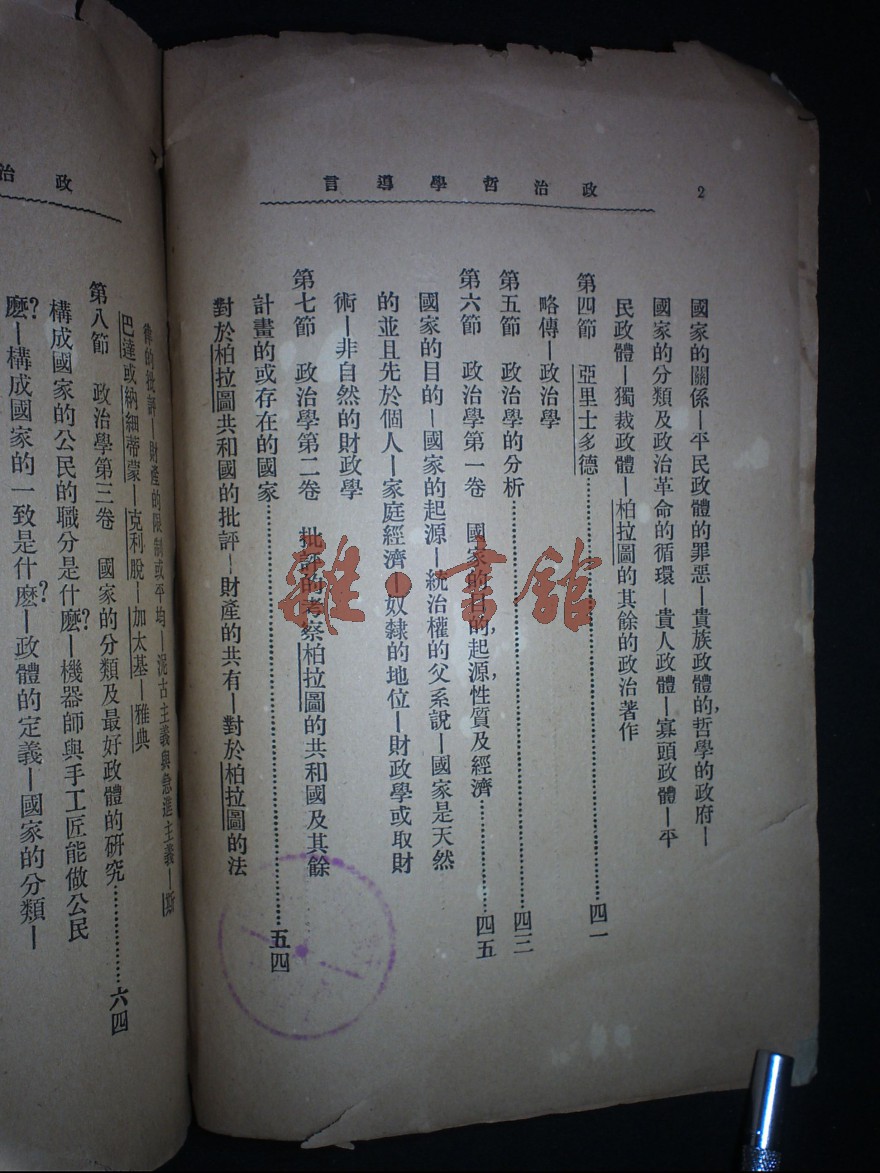 2
政治哲學導言
國家的關係—平民政體的罪惡—貴族政體的,哲學的政府—
國家的分類及政治革命的循環—貴人政體—寡頭政體—平
民政體—獨裁政體—柏拉圖的其餘的政治著作
第四節 亞里士多德……四一
略傳—政治學
第五節 政治學的分析……四三
第六節 政治學第一卷 國家的目的,起源,性質及經濟……四五
國家的目的—國家的起源—統治權的父系說—國家是天然
的並且先於個人—家庭經濟—奴隸的地位—財政學或取財
術—非自然的財政學
第七節 政治學第二卷 批評的考察柏拉圖的共和國及其餘
計畫的或存在的國家……五四
對於柏拉圖共和國的批評—財產的共有—對於柏拉圖的法
政治
律的批評—財產的限制或平均—泥古主義與急進主義—斯
巴達或納細蒂蒙—克利脫—加太基—雅典
第八節 政治學第三卷 國家的分類及最好政體的研究……六四
構成國家的公民的職分是什麽?—機器師與手工匠能做公民
麽?—構成國家的一致是什麽?—政體的定義—國家的分類—
雜·書館